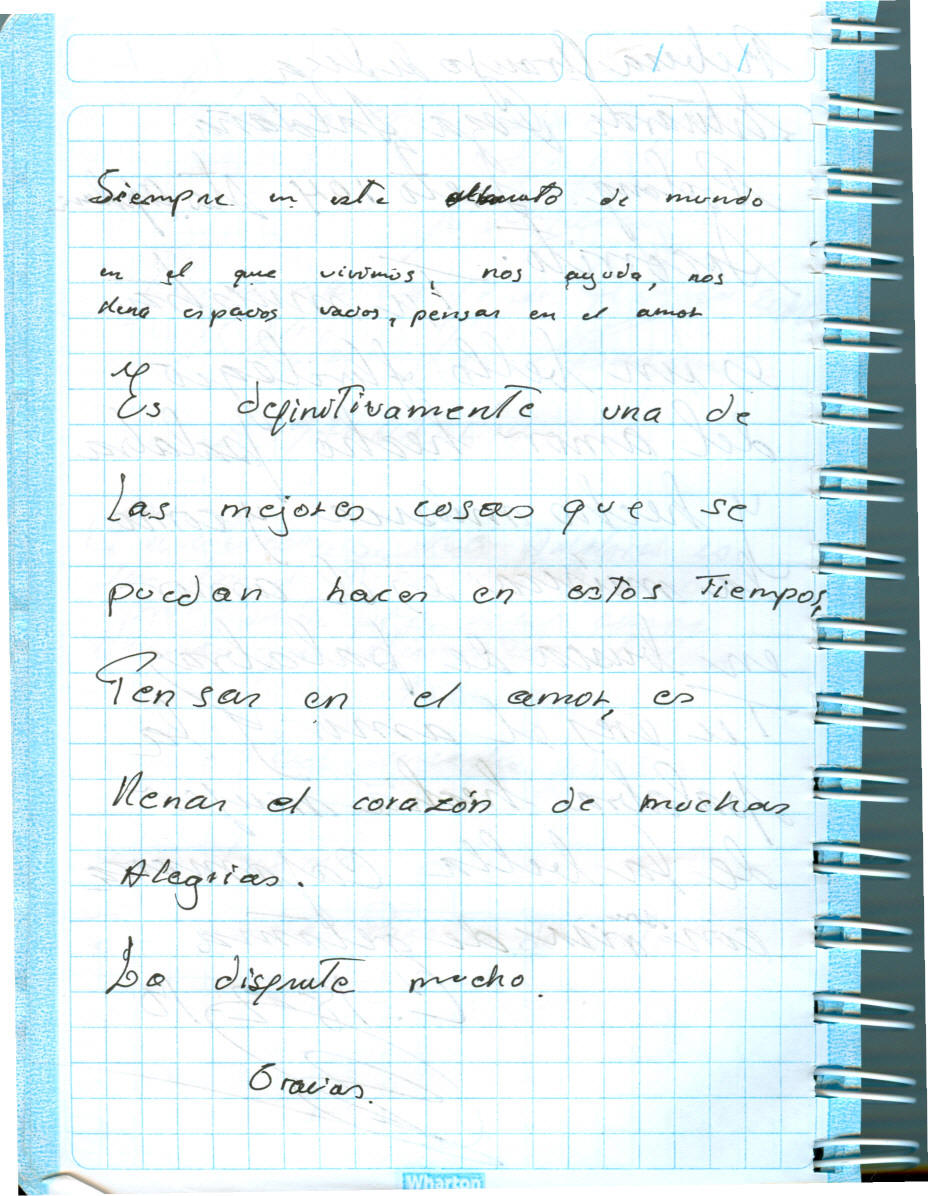 Siempre en este de mundo
en el que vivimos, nos ayuda, nos
llena espacios vacios, pensar en el amor
Es definitivamente una de
las mejores cosas que se
puedan hacer en estos tiempos,
Pensar en el amor, es
llenar el corazón de muchas
Alegrias.
Lo disfrute mucho.
Gracias.
Wharton